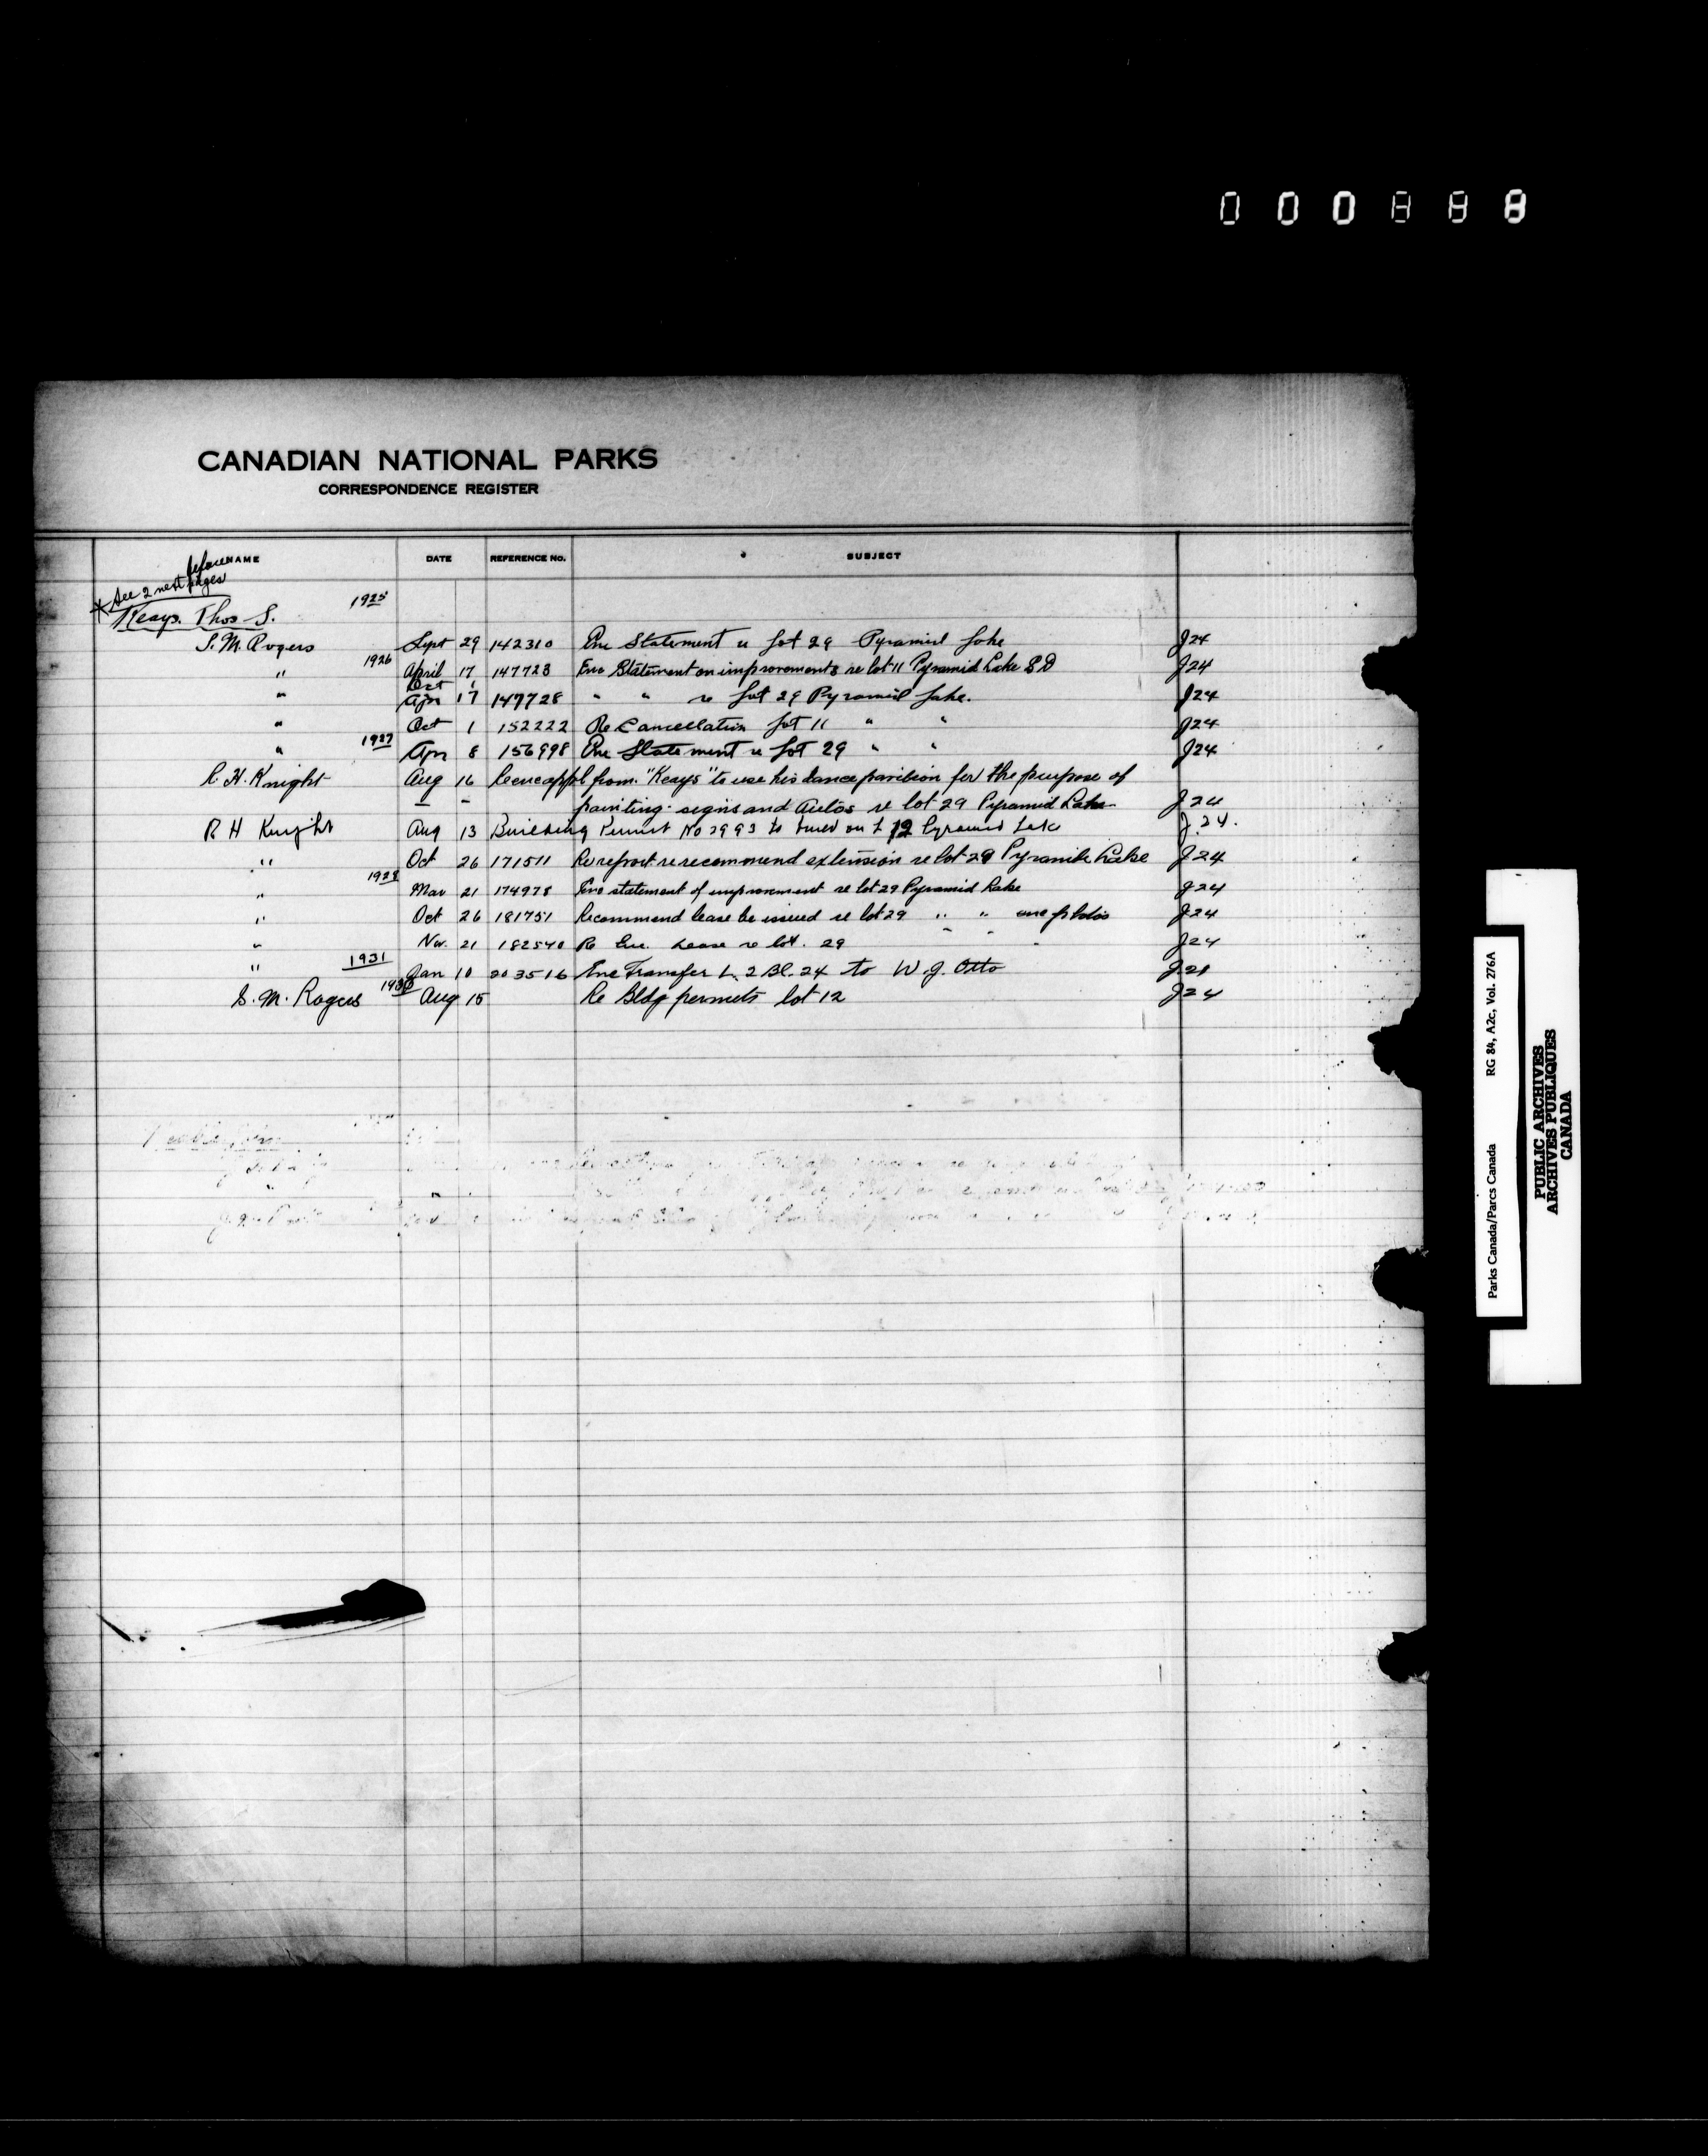 000888
CANADIAN NATIONAL PARKS
CORRESPONDENCE REGISTER
NAME DATE REFERENCE No. SUBJECT
before
* See 2 next pages
Keays. Thos S. 1925
S. M. Rogers Sept 29 142310 Enc Statement re Lot 29 Pyramid Lake J24
1926
" April 17 147723 Enc Statement on improvements re lot 11 Pyramid Lake S D J24
Oct 1
" Apr 17 147728 " " re Lot 29 Pyramid Lake. J24
" Oct 1 152222 Re Cancellation Lot 11 " " J24
1927
" Apr 8 156998 Enc Statement re Lot 29 " " J24
R. H. Knight Aug 16 Encl appl from "Keays" to use his dance pavilion for the purpose of
painting signs and Autos re lot 29 Pyramid Lake J24
R H Knight Aug 13 Building Permit No 2993 to on L 12 Pyramid Lake J.24.
" Oct 26 171511 Re report re recommend extension re lot 29 Pyramide Lake J24
1928
" Mar 21 174978 Enc statement of improvement re lot 29 Pyramid Lake J24
" Oct 26 181751 Recommend lease be issued re lot 29 " " enc photos J24
" Nov. 21 182540 Re Enc. Lease re lot. 29 " " " J24
1931
" Jan 10 203516 Enc Transfer L. 2 Bl. 24 to W. J. Otto J.21
S. M. Rogers Aug 15 Re Bldg permits lot 12 J24
Parks Canada/Parcs Canada RG 84, A2c, Vol. 276A
PUBLIC ARCHIVES
ARCHIVES PUBLIQUES
CANADA